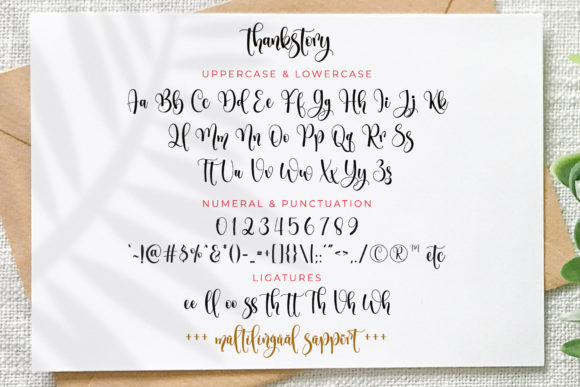 thankstory
UPPERCASE & LOWERCASE
Aa Bb Cc Dd Ee Ff Gg Hh Ii Jj Kk
Ll Mm Nn Oo Pp Qq Rr Ss
Tt Uu Vv Ww Xx Yy Zz
NUMERAL & PUNCTUATION
0 1 2 3 4 5 6 7 8 9
`~!@#$%^&*()-_=+[]{}\|;:'"<>,./©®™ etc
LIGATURES
ee ll oo ss th tt Th Vh Wh
+++ multilingual support +++